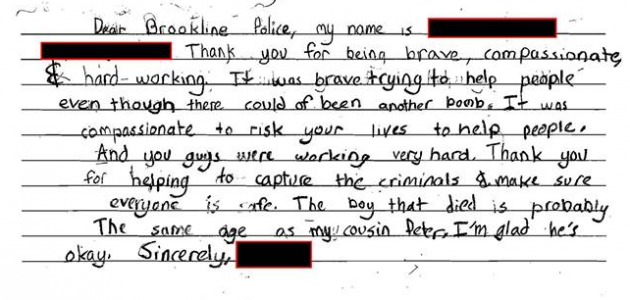 Dear Brookline Police, my name is
Thank you for being brave, compassionate,
& hard-working. It was brave trying to help people
even though there could of been another bomb. It was
compassionate to risk your lives to help people.
And you guys were working very hard. Thank you
for helping to capture the criminals & make sure
everyone is safe. The boy that died is probably
The same age as my cousin Peter, I'm glad he's
okay. Sincerely,